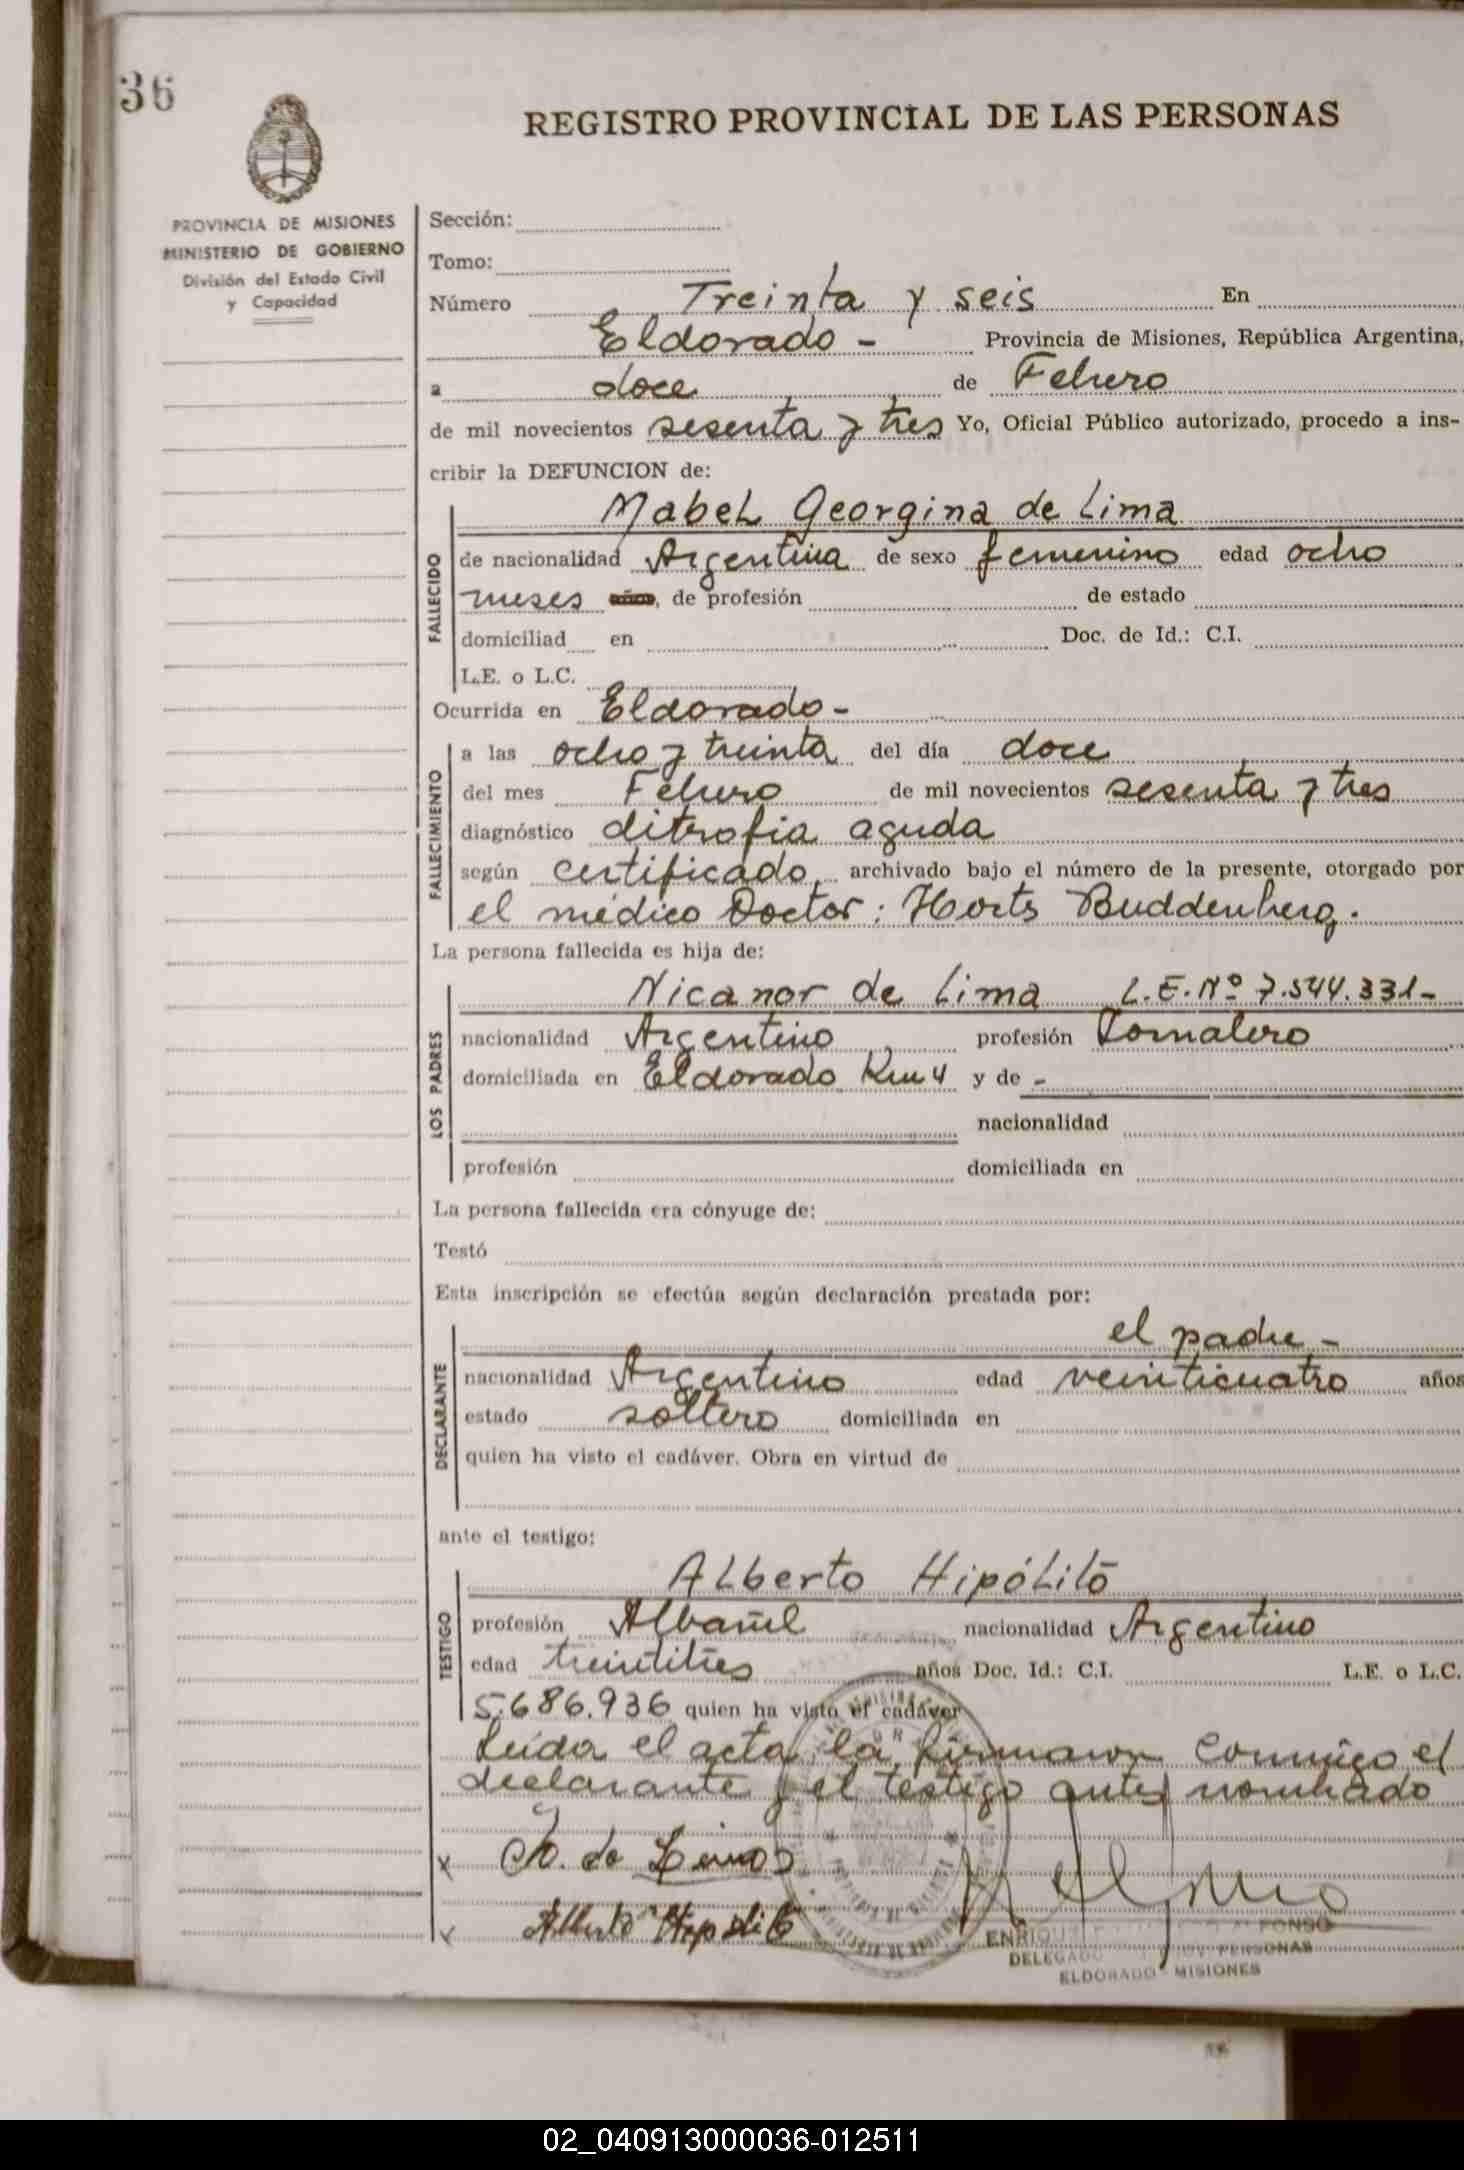 36
REGISTRO PROVINCIAL DE LAS PERSONAS
PROVINCIA DE MISIONES
MINISTERIO DE GOBIERNO
División del Estado Civil
y Capacidad
Sección:
Tomo:
Número Treinta y seis En
Eldorado - Provincia de Misiones, República Argentina,
a doce de Febrero
de mil novecientos sesenta y tres Yo, Oficial Público autorizado, procedo a ins-
cribir la DEFUNCION de:
FALLECIDO
Mabel Georgina de Lima
de nacionalidad Argentina de sexo femenino edad ocho
meses años, de profesión de estado
domiciliad en Doc. de Id.: C.I.
L.E. o L.C.
Ocurrida en Eldorado -
FALLECIMIENTO
a las ocho y treinta del día doce
del mes Febrero de mil novecientos sesenta y tres
diagnóstico ditrofia aguda
según certificado archivado bajo el número de la presente, otorgado por
el médico Doctor: Horts Buddenberg.
La persona fallecida es hija de:
LOS PADRES
Nicanor de Lima L.E. Nº 7.544.331-
nacionalidad Argentino profesión Jornalero
domiciliada en Eldorado Km 4 y de -
nacionalidad
profesión domiciliada en
La persona fallecida era cónyuge de:
Testó
Esta inscripción se efectúa según declaración prestada por:
DECLARANTE
el padre -
nacionalidad Argentino edad veinticuatro años
estado soltero domiciliada en
quien ha visto el cadáver. Obra en virtud de
ante el testigo:
TESTIGO
Alberto Hipólito
profesión Albañil nacionalidad Argentino
edad treintitres años Doc. Id.: C.I. L.E. o L.C.
5.686.936 quien ha visto el cadáver
Leída el acta la firmaron conmigo el
declarante y el testigo antes nombrado
x N. de Lima
x Alberto Hipolito
ENRIQUE ALFONSO
DELEGADO PERSONAS
ELDORADO - MISIONES
02_040913000036-012511